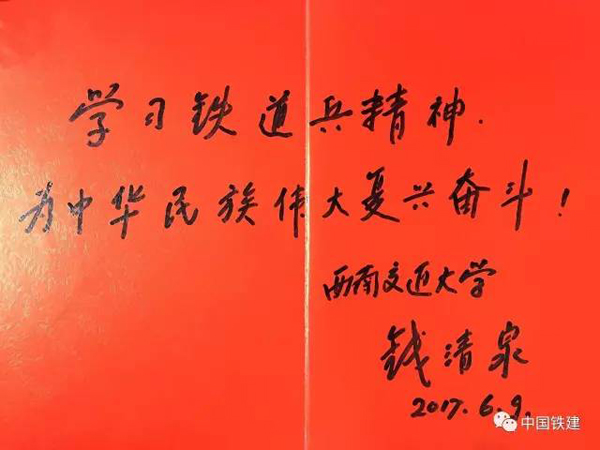 学习铁道兵精神.
为中华民族伟大复兴奋斗!
西南交通大学
钱清泉
2017.6.9.
中国铁建